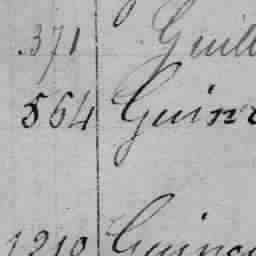 371 Guill
564 Guin
1210 Guin